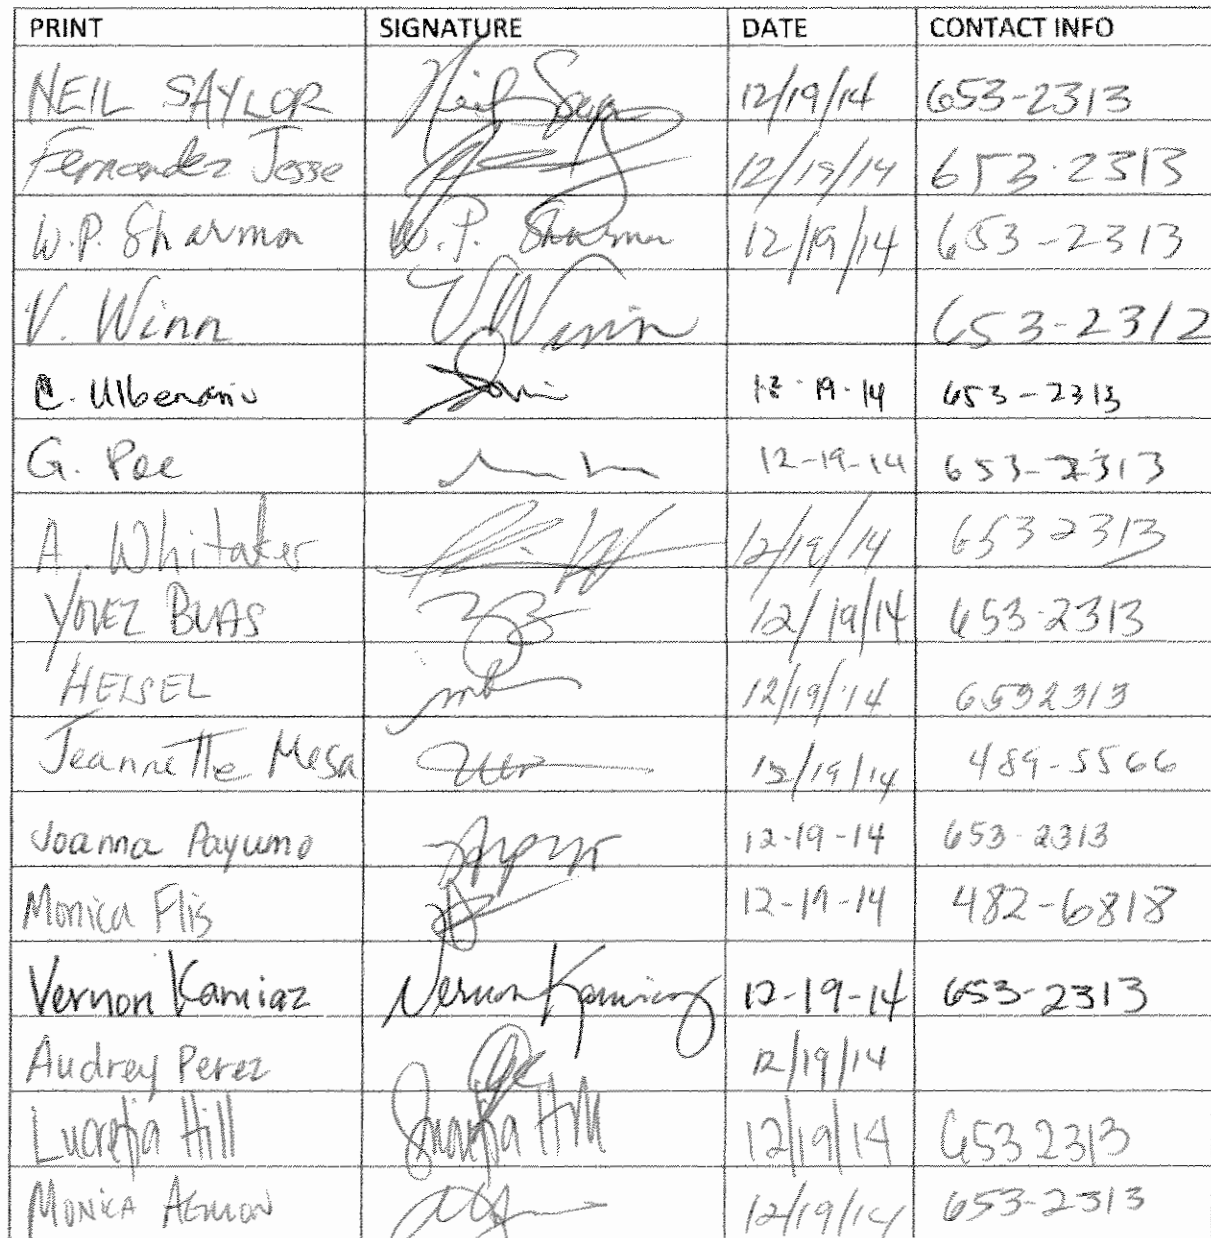 PRINT SIGNATURE DATE CONTACT INFO
NEIL SAYLOR 12/19/14 653-2313
Fernandez Jesse 12/19/14 653-2313
W.P. Sharma W.P. Sharma 12/19/14 653-2313
V. Winn V Winn 653-2312
C. 12-19-14 653-2313
G. Poe 12-19-14 653-2313
A. Whitaker 12/19/14 653 2313
BLAS 12/19/14 653-2313
HEISEL 12/19/14 6532313
Jeannette Mesa 12/19/14 489-5566
Joanna Payumo 12-19-14 653-2313
Monica Flis 12-19-14 482-6818
Vernon Kamiaz Vernon Kamiaz 12-19-14 653-2313
Audrey Perez 12/19/14
Lucretia Hill Lucretia Hill 12/19/14 653 2313
MONICA 12/19/14 653-2313